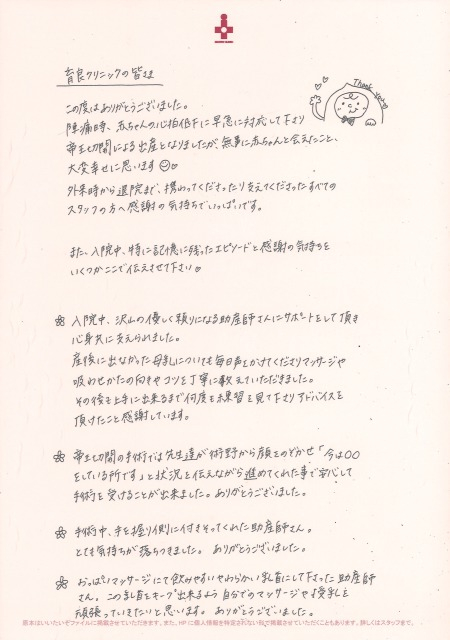 育良クリニックの皆様
Thank you
この度はありがとうございました。
陣痛時、赤ちゃんの心拍低下に早急に対応して下さり
帝王切開による出産となりましたが、無事に赤ちゃんと会えたこと、
大変幸せに思います
外来時から退院まで、携わってくださったり支えてくださったすべての
スタッフの方へ感謝の気持ちでいっぱいです。
また、入院中、特に記憶に残ったエピソードと感謝の気持ちを
いくつかここで伝えさせて下さい
入院中、沢山の優しく頼りになる助産師さんにサポートをして頂き
心身共に支えられました。
産後に出なかった母乳についても毎日声をかけてくださりマッサージや
吸わせかたの向きやコツを丁寧に教えていただきました。
その後も上手に出来るまで何度も練習を見て下さりアドバイスを
頂けたこと感謝しています。
帝王切開の手術では先生達が術野から顔をのぞかせ「今は○○
をしている所です」と状況を伝えながら進めてくれた事で安心して
手術を受けることが出来ました。ありがとうございました。
手術中、手を握り側に付きそってくれた助産師さん。
とても気持ちが落ちつきました。ありがとうございました。
おっぱいマッサージにて飲みやすいやわらかい乳首にして下さった助産師
さん。この乳首をキープ出来るよう自分でのマッサージや授乳を
頑張っていきたいと思います。ありがとうございました。
原本はいいたいぞファイルに掲載させていただきます。また、HPに個人情報を特定されない形で掲載させていただくこともあります。詳しくはスタッフまで。